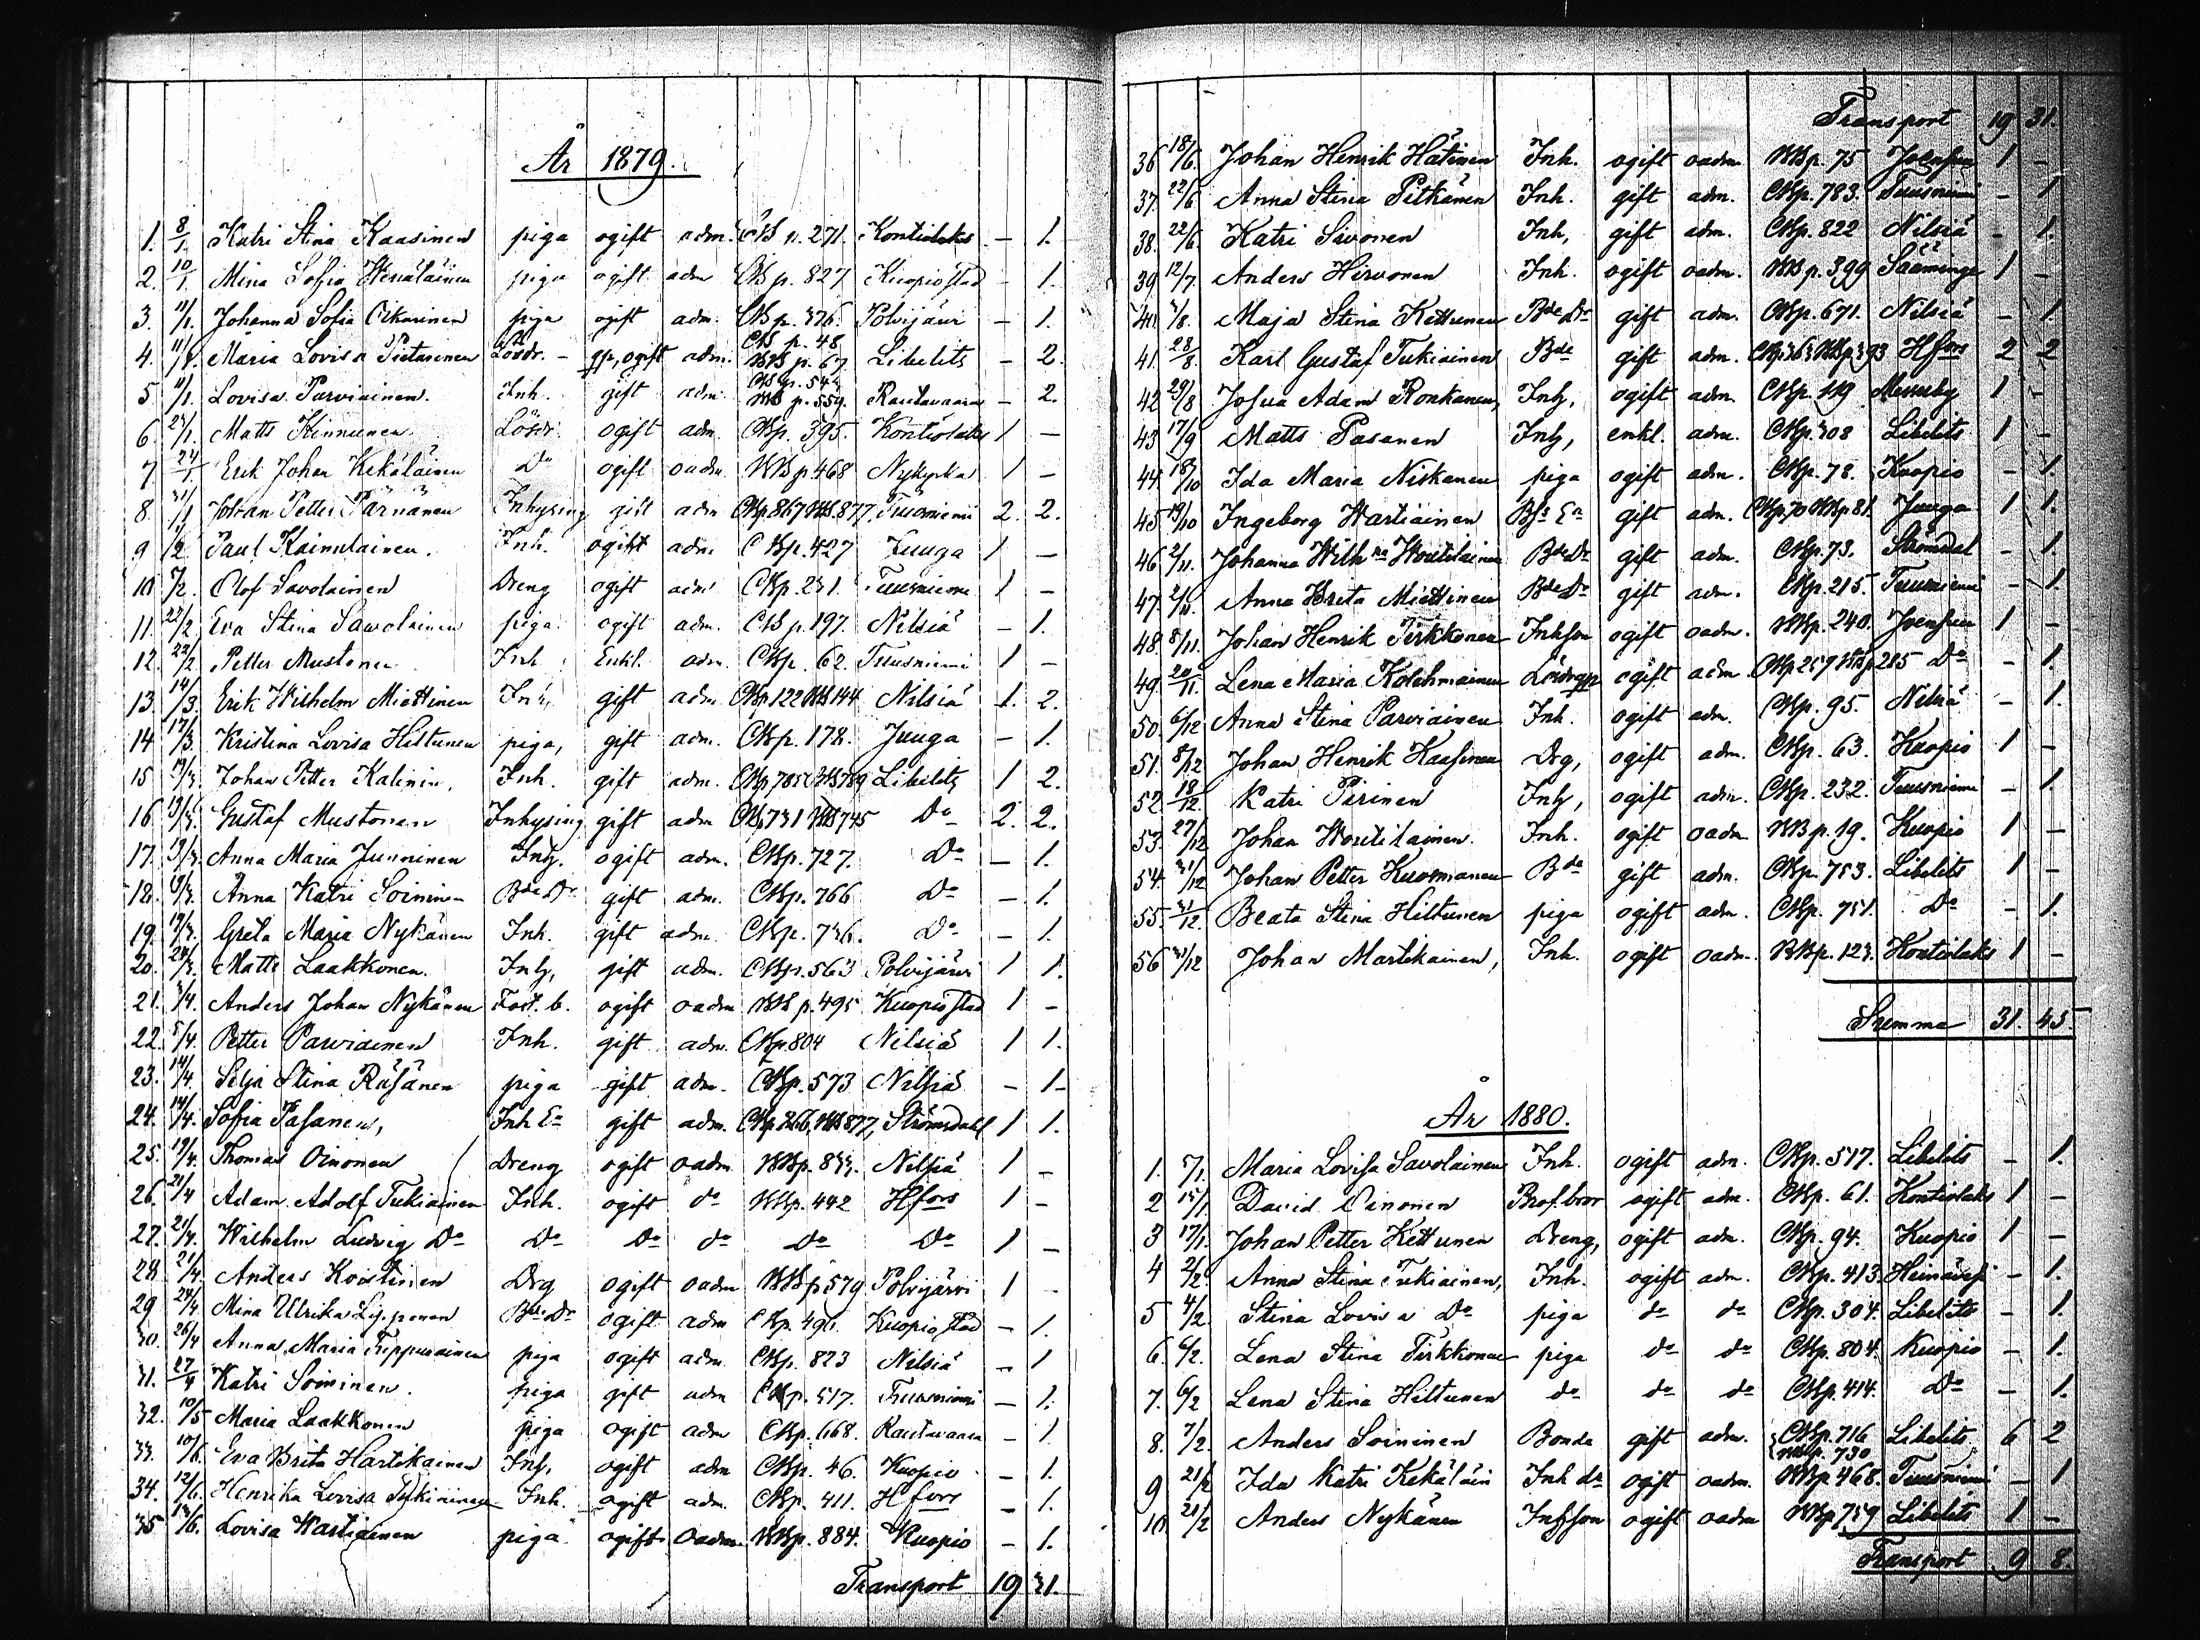 År 1879.
1. 8/1. Katri Stina Kaasinen piga ogift adm. CB p. 271. Kontiolaks – 1.
2. 10/1. Mina Sofia Venäläinen piga ogift adm CB p. 827 Kuopio stad – 1.
3. 11/1. Johanna Sofia Oikarinen piga ogift adm. CB p. 376. Polvijärvi – 1.
4. 11/1. Maria Lovisa Pietarinen Lösdr. – qp, ogift adm. CB p. 48 BB p. 67 Libelits – 2.
5 11/1. Lovisa Parviainen. Inh. gift adm BB p. 559. Rautavaara – 2.
6. Matts Kinnunen Lösdr. ogift adm. CBp. 395. Kontiolaks 1 –
7. 24/1 Erik Johan Kekäläinen Do ogift oadm BBp 468 Nykyrka 1 –
8. 31/1 Johan Petter Pärnänen Inhysing gift adm CBp 867 BB. 877. Tuusniemi 2. 2.
9 Paul Kainulainen. Inh. ogift adm CBp. 427 Juuga 1 –
10. 7/2. Olof Savolainen Dreng ogift adm CBp. 231. Tuusniemi 1 –
11. 22/2 Eva Stina Sawolainen piga ogift adm. CB p. 197. Nilsiä – 1.
12. 22/2 Petter Mustonen Inh. Enkl. adm. CBp. 62. Tuusniemi 1 –
13. 14/3. Erik Wilhelm Miettinen Inh, gift adm CBp 122 BB 144 Nilsiä 1. 2.
14 17/3. Kristina Lovisa Hiltunen piga, gift adm. CBp. 178. Juuga – 1.
15 19/3. Johan Petter Kalinin, Inh. gift adm. CBp 785 BB 789 Libelits 1 2.
16 19/3. Gustaf Mustonen Inhysing gift adm CBp 731 BB 745 Do 2. 2.
17. 19/3. Anna Maria Junninen Inh. ogift adm. CBp. 727. Do – 1.
18. 19/3. Anna Katri Soininen Bde Dr gift adm. CBp. 766 Do – 1.
19. 19/3. Greta Maria Nykänen Inh. gift adm. CBp. 736. Do – 1.
20. 28/3. Matts Laakkonen. Inh, gift adm. CBp. 563 Polvijärvi 1 1.
21. 3/4. Anders Johan Nykänen Fost. b. ogift oadm BB p. 495 Kuopio stad 1 –
22. 5/4. Petter Parviainen Inh. gift adm. CBp. 804 Nilsiä 1 1.
23. 14/4. Selja Stina Räsänen piga gift adm. CBp. 573 Nilsiä – 1.
24. 14/4. Sofia Pasanen, Inh Ea gift adm. CBp. 866, BB 877, Strömsdahl 1 1.
25. 19/4. Thomas Oinonen Dreng ogift oadm BBp. 833. Nilsiä 1 –
26. 21/4 Adam Adolf Tukiainen Inh. ogift do BBp. 442 Hfors 1 –
27. 21/4. Wilhelm Ludvig Do Do Do do Do Do 1 –
28. 21/4. Anders Koistinen Drg ogift oadm BB p 579 Polvijärvi 1 –
29 24/4 Mina Ulrika Lipponen Bde Dr ogift adm CBp. 496. Kuopio stad – 1.
30. 26/4 Anna Maria Tiippurainen piga ogift adm. CBp. 823 Nilsiä – 1
31. 27/4 Katri Soininen. piga gift adm CBp. 517. Tuusniemi – 1.
32. 10/5 Maria Laakkonen piga ogift adm CBp. 668. Rautavaara – 1.
33. 10/6. Eva Brita Hartikainen Inh, ogift adm CBp. 46. Kuopio – 1.
34. 12/6. Henrika Lovisa Tukiainen Inh. ogift adm. CBp. 411. Hfors – 1.
35 Lovisa Hartiainen piga ogift Oadm. BBp. 884. Kuopio – 1.
Transport 19 31.
Transport 19 31.
36 18/6. Johan Henrik Hätinen Inh. ogift oadm. BBp. 75 Joensuu 1 –
37. 22/6. Anna Stina Pitkänen Inh. gift adm. CBp. 783. Tuusniemi – 1.
38. 22/6. Katri Sivonen Inh, gift adm. CBp. 822 Nilsiä – 1.
39 12/7. Anders Hirvonen Inh. ogift oadm. BB p. 399 Sääminge 1 –
40 Maja Stina Kettunen Bde Dr gift adm. CBp. 671. Nilsiä – 1.
41. 28/8. Karl Gustaf Tukiainen Bde gift adm. CBp 363 BBp 393 Hfors 2 2
42 29/8 Josua Adam Ronkanen, Inh, ogift adm. CBp. 119 1 –
43 17/9 Matts Pasanen Inh, enkl. adm. CBp. 308 Libelits 1 –
44 18/10 Ida Maria Niskanen piga ogift adm. CBp. 78. Kuopio – 1.
45 19/10 Ingeborg Hartiainen gift adm. CBp 70 BBp 81. Juuga 1 1.
46 2/11. Johanna Wilh na Woutilainen Bde Dr gift adm. CBp. 73. Strömsdal – 1.
47. 2/11. Anna Brita Miettinen Bde Dr gift adm. CBp. 215. Tuusniemi – 1.
48. 8/11. Johan Henrik Pirkkonen Inhson ogift oadm. BBp. 240. Joensuu 1 –
49. 20/11. Lena Maria Kolehmainen Lösdr qp ogift adm. CBp 257 BBp 285 Do – 1.
50. 6/12 Anna Stina Parviainen Inh. ogift adm. CBp. 95. Nilsiä – 1.
51. 8/12 Johan Henrik Kaasinen Drg, ogift adm. CBp. 63. Kuopio 1 –
52 18/12. Katri Pirinen Inh, ogift adm. CBp. 232. Tuusniemi – 1.
53. 27/12 Johan Woutilainen. Inh. ogift oadm BB p. 19. Kuopio 1 –
54. 31/12 Johan Petter Kuosmanen Bde gift adm. CBp. 753. Libelits 1 –
55. 31/12. Beata Stina Hiltunen piga ogift adm. CBp. 751. Do – 1.
56 31/12 Johan Martikainen, Inh. ogift oadm. BBp. 123. Kontiolaks 1 –
Summa 31. 45
År 1880.
1. 5/1. Maria Lovisa Savolainen Inh. ogift adm. CBp. 517. Libelits – 1.
2 15/1. David Oinonen ogift adm. CBp. 61. Kontiolaks 1 –
3 17/1. Johan Petter Kettunen Dreng, ogift adm. CBp. 94. Kuopio 1 –
4 2/2. Anna Stina Tukiainen, Inh. ogift adm. CBp. 413. Heinävesi – 1.
5 4/2. Stina Lovisa Do piga do do CBp. 304. Libelits – 1.
6. 6/2. Lena Stina Pirkkonen piga do do CBp. 804. Kuopio – 1.
7. 6/2. Lena Stina Hiltunen do do do CBp. 414. Do – 1.
8. 7/2. Anders Soininen Bonde gift adm. CBp. 716 BBp. 730 Libelits 6 2
9 21/2 Ida Katri Kekäläin Inh dr ogift oadm. BBp 468. Tuusniemi – 1
10. 21/2 Anders Nykänen Inhson ogift oadm BBp 759 Libelits 1 –
Transport 9 8.